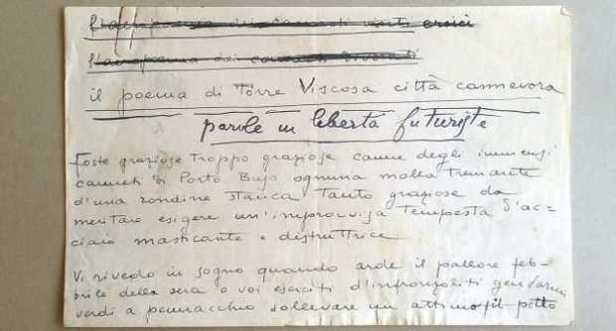 L'aeropoema dei canneti vinti eroici
L'aeropoema dei canneti
il poema di Torre Viscosa città cannevora
parole in libertà futuriste
Foste graziose troppo graziose canne degli immensi
canneti di Porto Buso ognuna molla tremante
d'una rondine stanca Tanto graziose da
meritare esigere un'improvvisa tempesta d'ac-
ciaio masticante e distruttrice
Vi rivedo in sogno quando arde il pallore feb-
brile della sera o voi eserciti d'infronzoliti gendarmi
verdi a pennacchio sollevare un attimo il petto